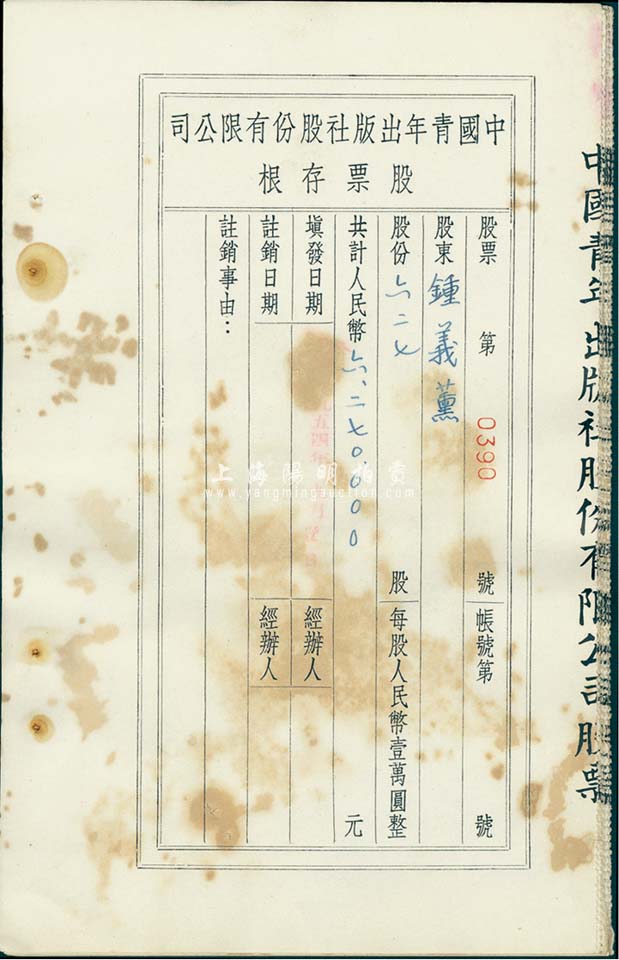 中國青年出版社股份有限公司
股票存根
股票 第 0390 號 帳號第 號
股東 鍾義薰
股份 六二七 股 每股人民幣壹萬圓整
共計人民幣 六、二七0.000 元
填發日期 五四年 經辦人
註銷日期 經辦人
註銷事由：
中國青年出版社股份有限公司股票
上海陽明拍賣
www.yangmingauction.com